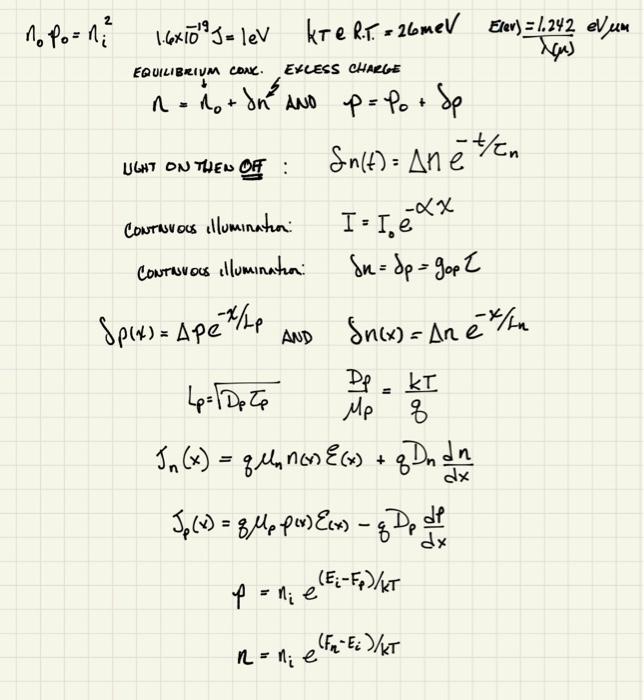 n₀p₀ = nᵢ² 1.6×10⁻¹⁹ J = 1eV kT @ R.T. = 26meV E(eV) = 1.242 eV μm / λ(μ)
EQUILIBRIUM CONC. EXCESS CHARGE
n = n₀ + δn AND p = p₀ + δp
LIGHT ON THEN OFF : δn(t) = Δn e^(-t/τₙ)
CONTINUOUS illumination: I = I₀ e^(-αx)
CONTINUOUS illumination: δn = δp = g_op τ
δp(x) = Δp e^(-x/Lₚ) AND δn(x) = Δn e^(-x/Lₙ)
Lₚ = √(Dₚ τₚ) Dₚ/μₚ = kT/q
Jₙ(x) = qμₙ n(x) ℰ(x) + qDₙ dn/dx
Jₚ(x) = qμₚ p(x) ℰ(x) − qDₚ dp/dx
p = nᵢ e^((Eᵢ-Fₚ)/kT)
n = nᵢ e^((Fₙ-Eᵢ)/kT)